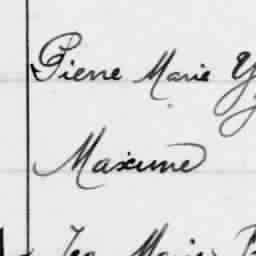 Pierre Marie Y
Maxime
Marie